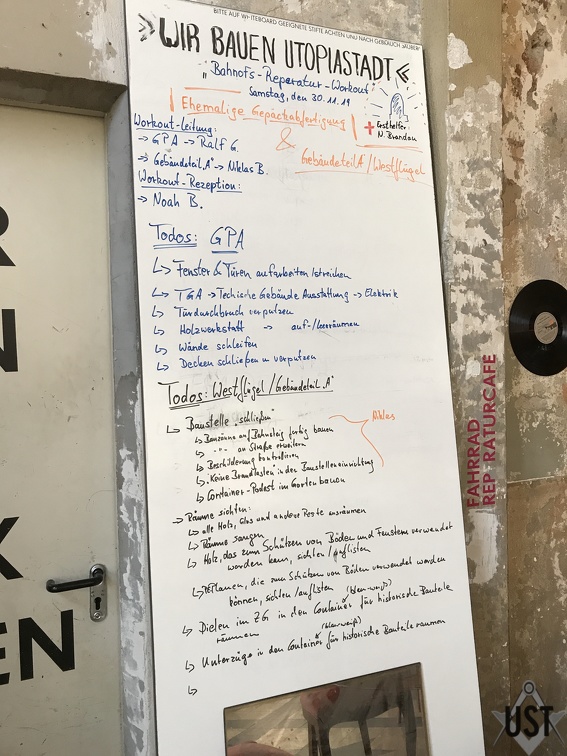 BITTE AUF WHITEBOARD GEEIGNETE STIFTE ACHTEN UND NACH GEBRAUCH SÄUBERN
»WIR BAUEN UTOPIASTADT«
"Bahnofs-Reperatur-Workout"
Samstag, den 30.11.19
Ehemalige Gepäckabfertigung
&
Gebäudeteil A / Westflügel
+ Ersthelfer:
N. Brandau
Workout-Leitung:
→ GPA → Ralf G.
→ Gebäudeteil "A" → Niklas B.
Workout-Rezeption:
→ Noah B.
Todos: GPA
↳ Fenster & Türen aufarbeiten/streichen
↳ TGA → Techische Gebäude Ausstattung → Elektrik
↳ Türdurchbruch verputzen
↳ Holzwerkstatt → auf-/leerräumen
↳ Wände schleifen
↳ Decken schließen u. verputzen
Todos: Westflügel / Gebäudeteil "A"
↳ Baustelle "schließen"
↳ Bauzäune auf Bahnsteig fertig bauen
↳ -"- an Straße erweitern
↳ Beschilderung kontrollieren
↳ "Keine Brandlasten" in der Baustelleneinrichtung
↳ Container-Podest im Garten bauen
Niklas
→ Räume sichten:
↳ alle Holz, Glas und andere Reste ausräumen
↳ Räume saugen
↳ Holz, das zum Schützen von Böden und Fenstern verwendet
werden kann, sichten/auflisten
↳ Planen, die zum Schützen von Böden verwendet werden
können, sichten/auflisten
↳ Dielen im ZG in den Container (blau-weiß) für historische Bauteile
räumen
↳ Unterzüge in den Container (blau-weiß) für historische Bauteile räumen
↳
FAHRRAD
REP RATURCAFE
R
N
K
EN
UST